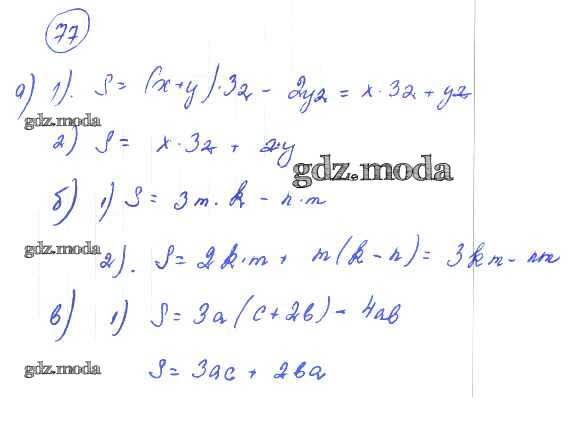 77
а) 1). S = (x+y)·3z - 2yz = x·3z + yz
gdz.moda
2) S = x·3z + zy
gdz.moda
б) 1) S = 3m·k - n·m
gdz.moda
2). S = 2k·m + m(k-n) = 3km - nm
в) 1) S = 3a(c+2в) - 4aв
gdz.moda
S = 3ac + 2вa